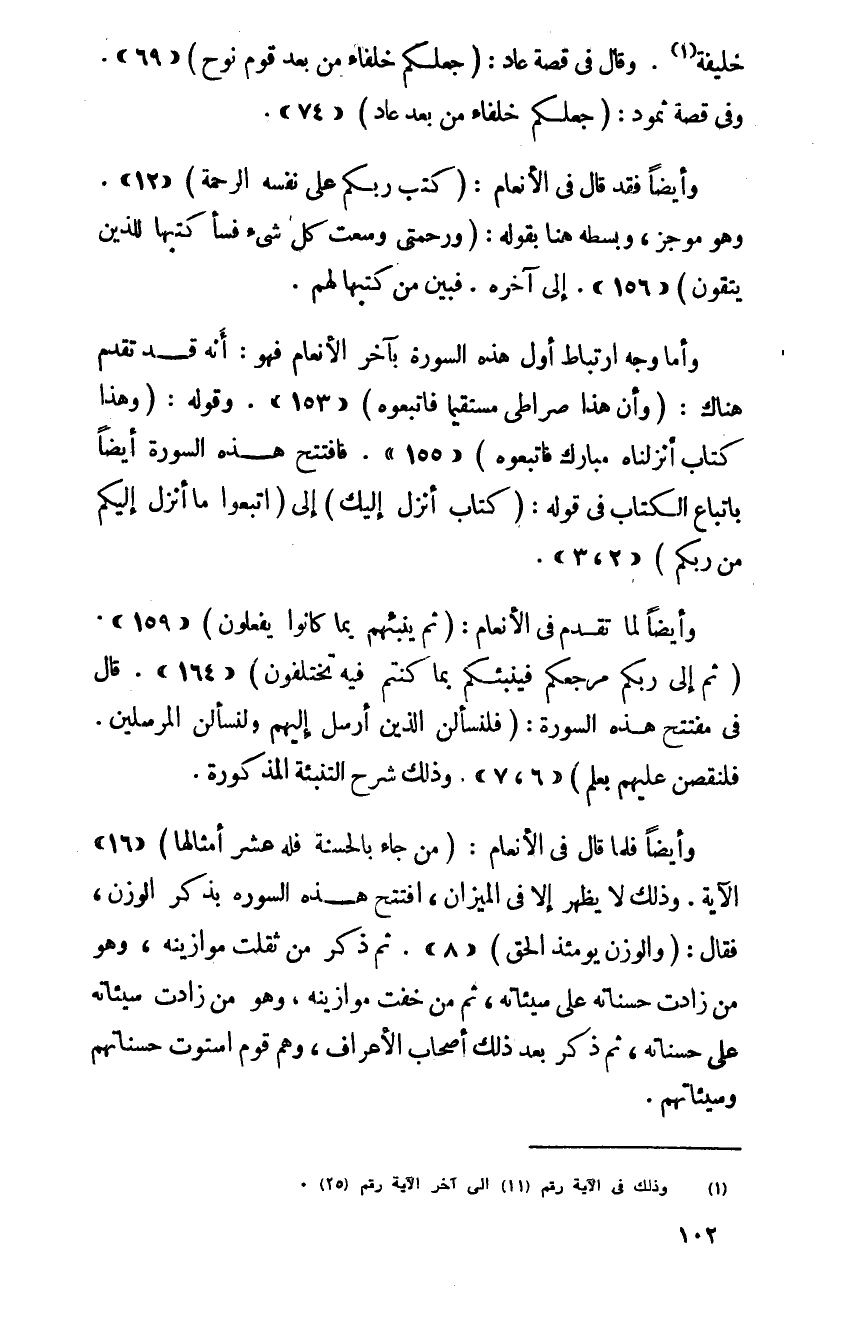 خليفة(١) . وقال فى قصة عاد : ( جعلكم خلفاء من بعد قوم نوح ) «٦٩» .
وفى قصة ثمود : ( جعلكم خلفاء من بعد عاد ) «٧٤» .
وأيضاً فقد قال فى الأنعام : ( كتب ربكم على نفسه الرحمة ) «١٢» .
وهو موجز ، وبسطه هنا بقوله : ( ورحمتى وسعت كل شىء فسأ كتبها للذين
يتقون ) «١٥٦» . إلى آخره . فبين من كتبها لهم .
وأما وجه ارتباط أول هذه السورة بآخر الأنعام فهو : أنه قد تقدم
هناك : ( وأن هذا صراطى مستقيما فاتبعوه ) «١٥٣» . وقوله : ( وهذا
كتاب أنزلناه مبارك فاتبعوه ) «١٥٥» . فافتتح هذه السورة أيضاً
باتباع الكتاب فى قوله : ( كتاب أنزل إليك ) إلى ( اتبعوا ما أنزل إليكم
من ربكم ) «٢ ، ٣» .
وأيضاً لما تقدم فى الأنعام : ( ثم ينبئهم بما كانوا يفعلون ) «١٥٩» .
( ثم إلى ربكم مرجعكم فينبئكم بما كنتم فيه تختلفون ) «١٦٤» . قال
فى مفتتح هذه السورة : ( فلنسألن الذين أرسل إليهم ولنسألن المرسلين .
فلنقصن عليهم بعلم ) «٦ ، ٧» . وذلك شرح التنبئة المذكورة .
وأيضاً فلما قال فى الأنعام : ( من جاء بالحسنة فله عشر أمثالها ) «١٦»
الآية . وذلك لا يظهر إلا فى الميزان ، افتتح هذه السوره بذكر الوزن ،
فقال : ( والوزن يومئذ الحق ) «٨» . ثم ذكر من ثقلت موازينه ، وهو
من زادت حسناته على سيئاته ، ثم من خفت موازينه ، وهو من زادت سيئاته
على حسناته ، ثم ذكر بعد ذلك أصحاب الأعراف ، وهم قوم استوت حسناتهم
وسيئاتهم .
(١) وذلك فى الآية رقم (١١) الى آخر الآية رقم (٢٥) .
١٠٢